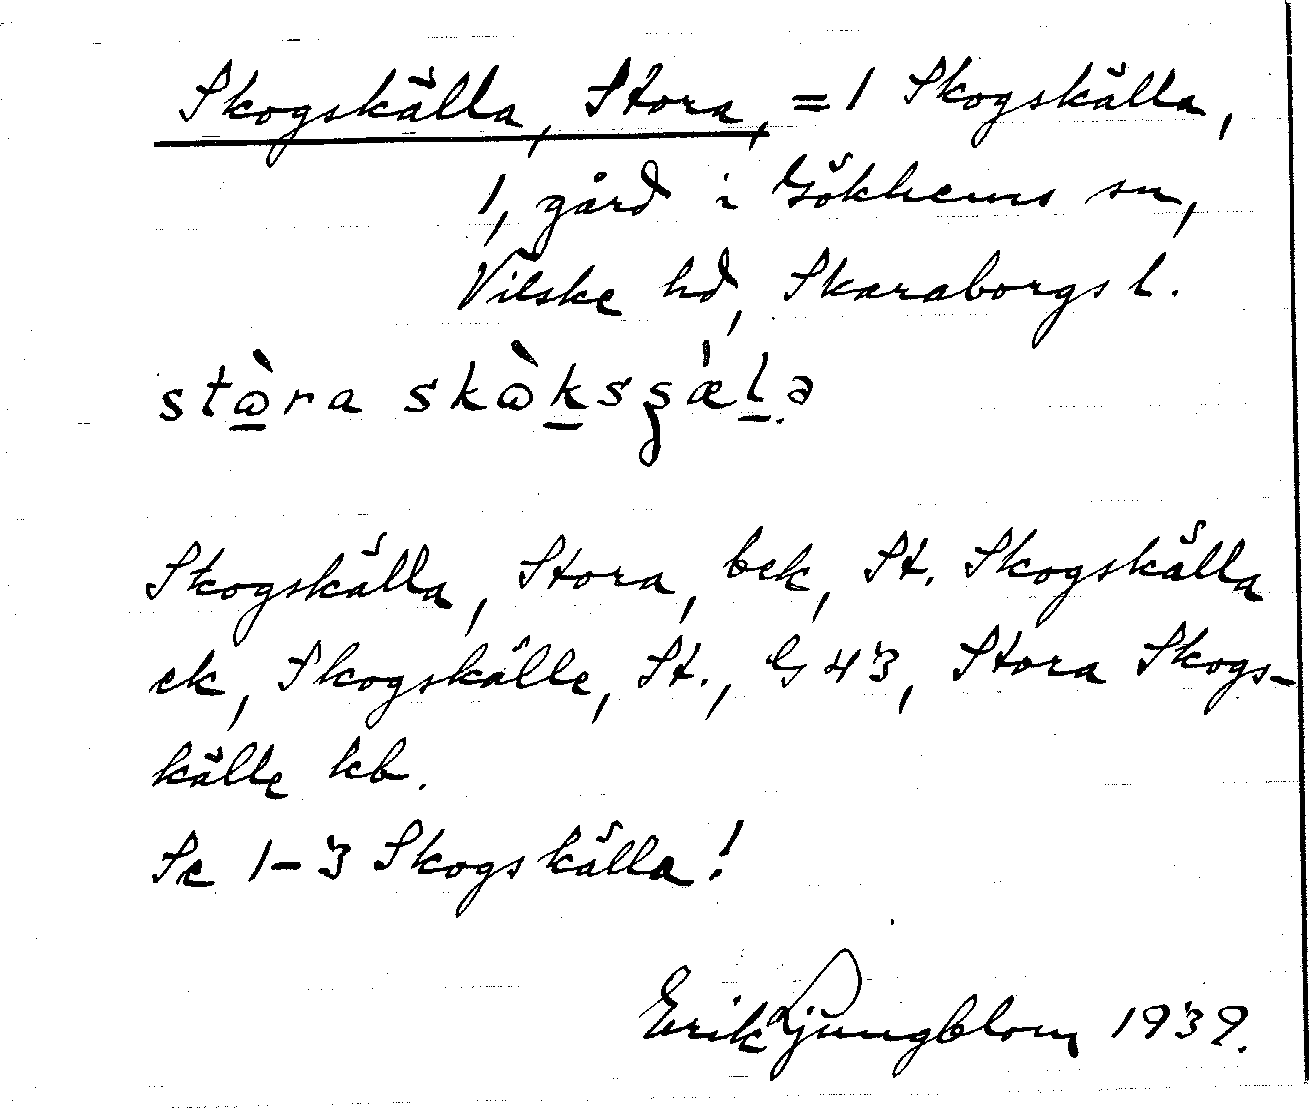 Skogskälla, Stora, = 1 Skogskälla,
1, gård i Gökhems sn,
Vilske hd, Skaraborgs l.
stɷ̀ra skɷ̀ksʂæ̀lə
Skogskälla, Stora, bek, St. Skogskälla
ek, Skogskälle, St., G 43, Stora Skogs-
källe kb.
Se 1-3 Skogskälla!
Erik Ljungblom 1939.